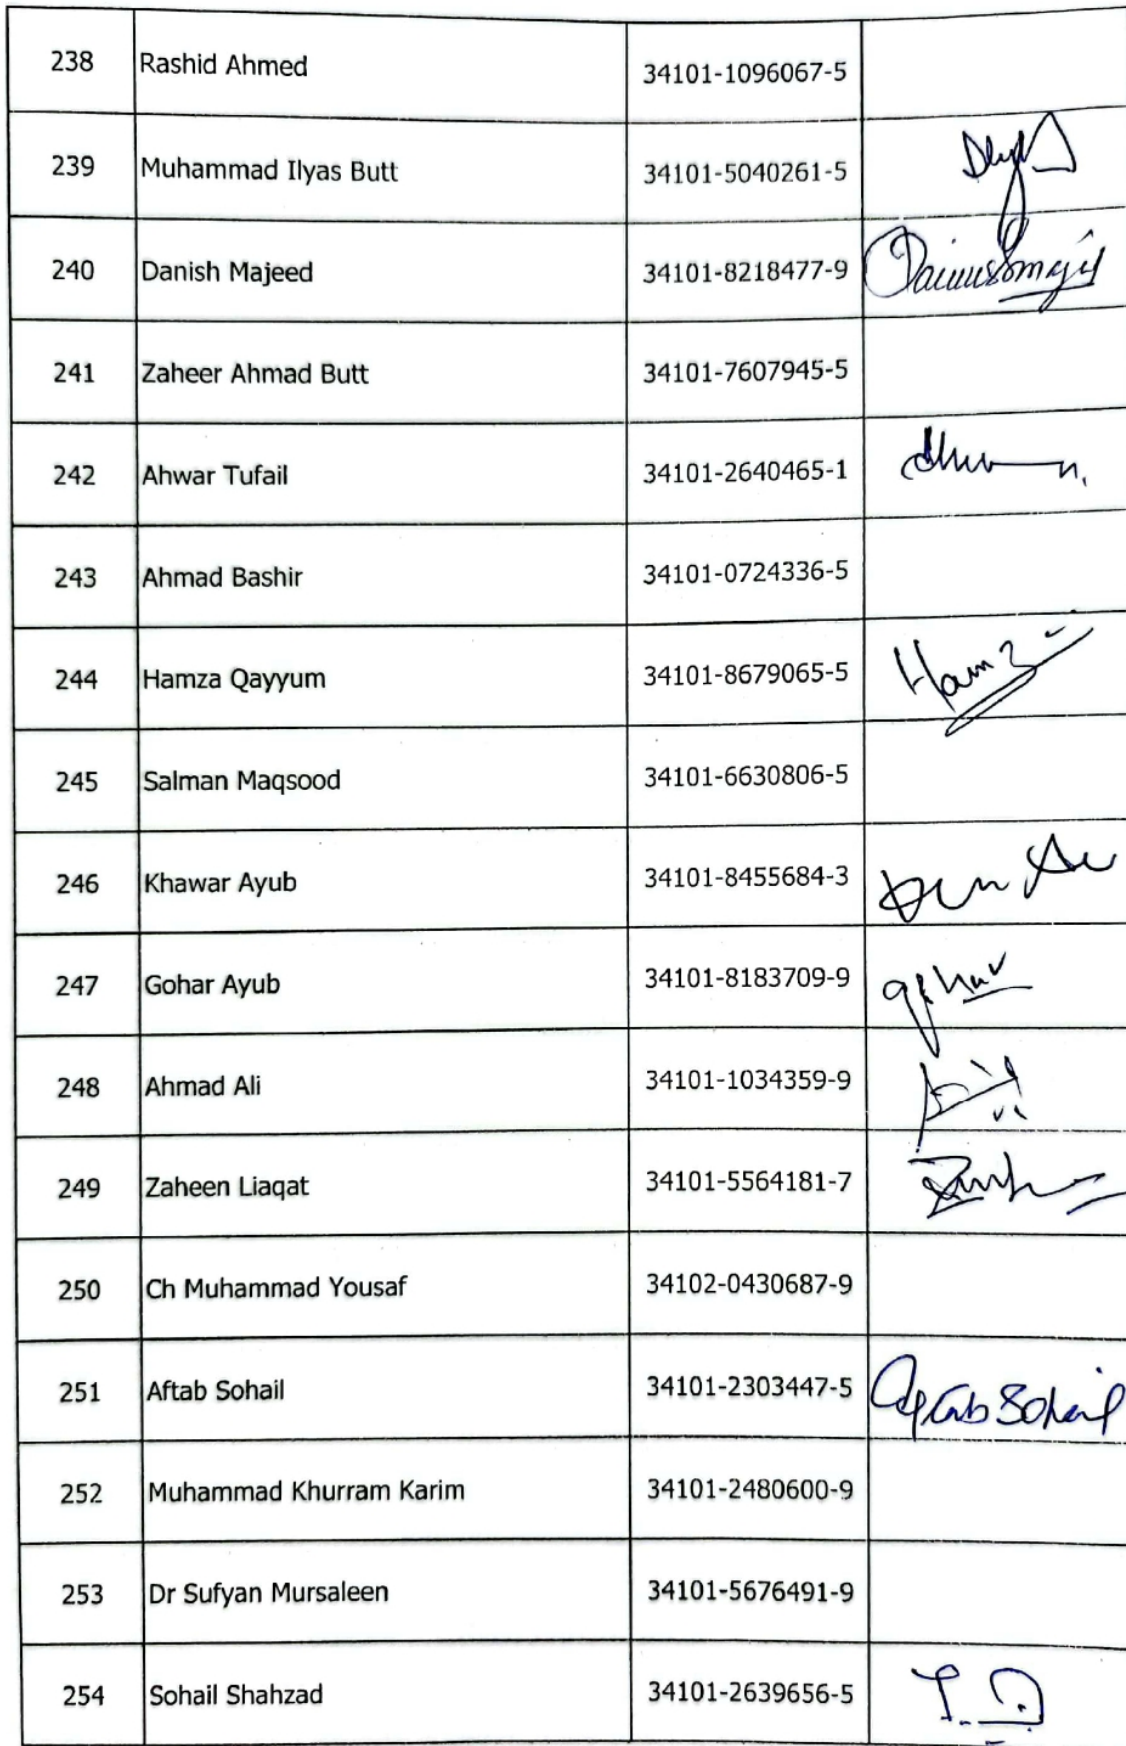 238 Rashid Ahmed 34101-1096067-5
239 Muhammad Ilyas Butt 34101-5040261-5
240 Danish Majeed 34101-8218477-9
241 Zaheer Ahmad Butt 34101-7607945-5
242 Ahwar Tufail 34101-2640465-1
243 Ahmad Bashir 34101-0724336-5
244 Hamza Qayyum 34101-8679065-5
245 Salman Maqsood 34101-6630806-5
246 Khawar Ayub 34101-8455684-3
247 Gohar Ayub 34101-8183709-9
248 Ahmad Ali 34101-1034359-9
249 Zaheen Liaqat 34101-5564181-7
250 Ch Muhammad Yousaf 34102-0430687-9
251 Aftab Sohail 34101-2303447-5 Aftab Sohail
252 Muhammad Khurram Karim 34101-2480600-9
253 Dr Sufyan Mursaleen 34101-5676491-9
254 Sohail Shahzad 34101-2639656-5